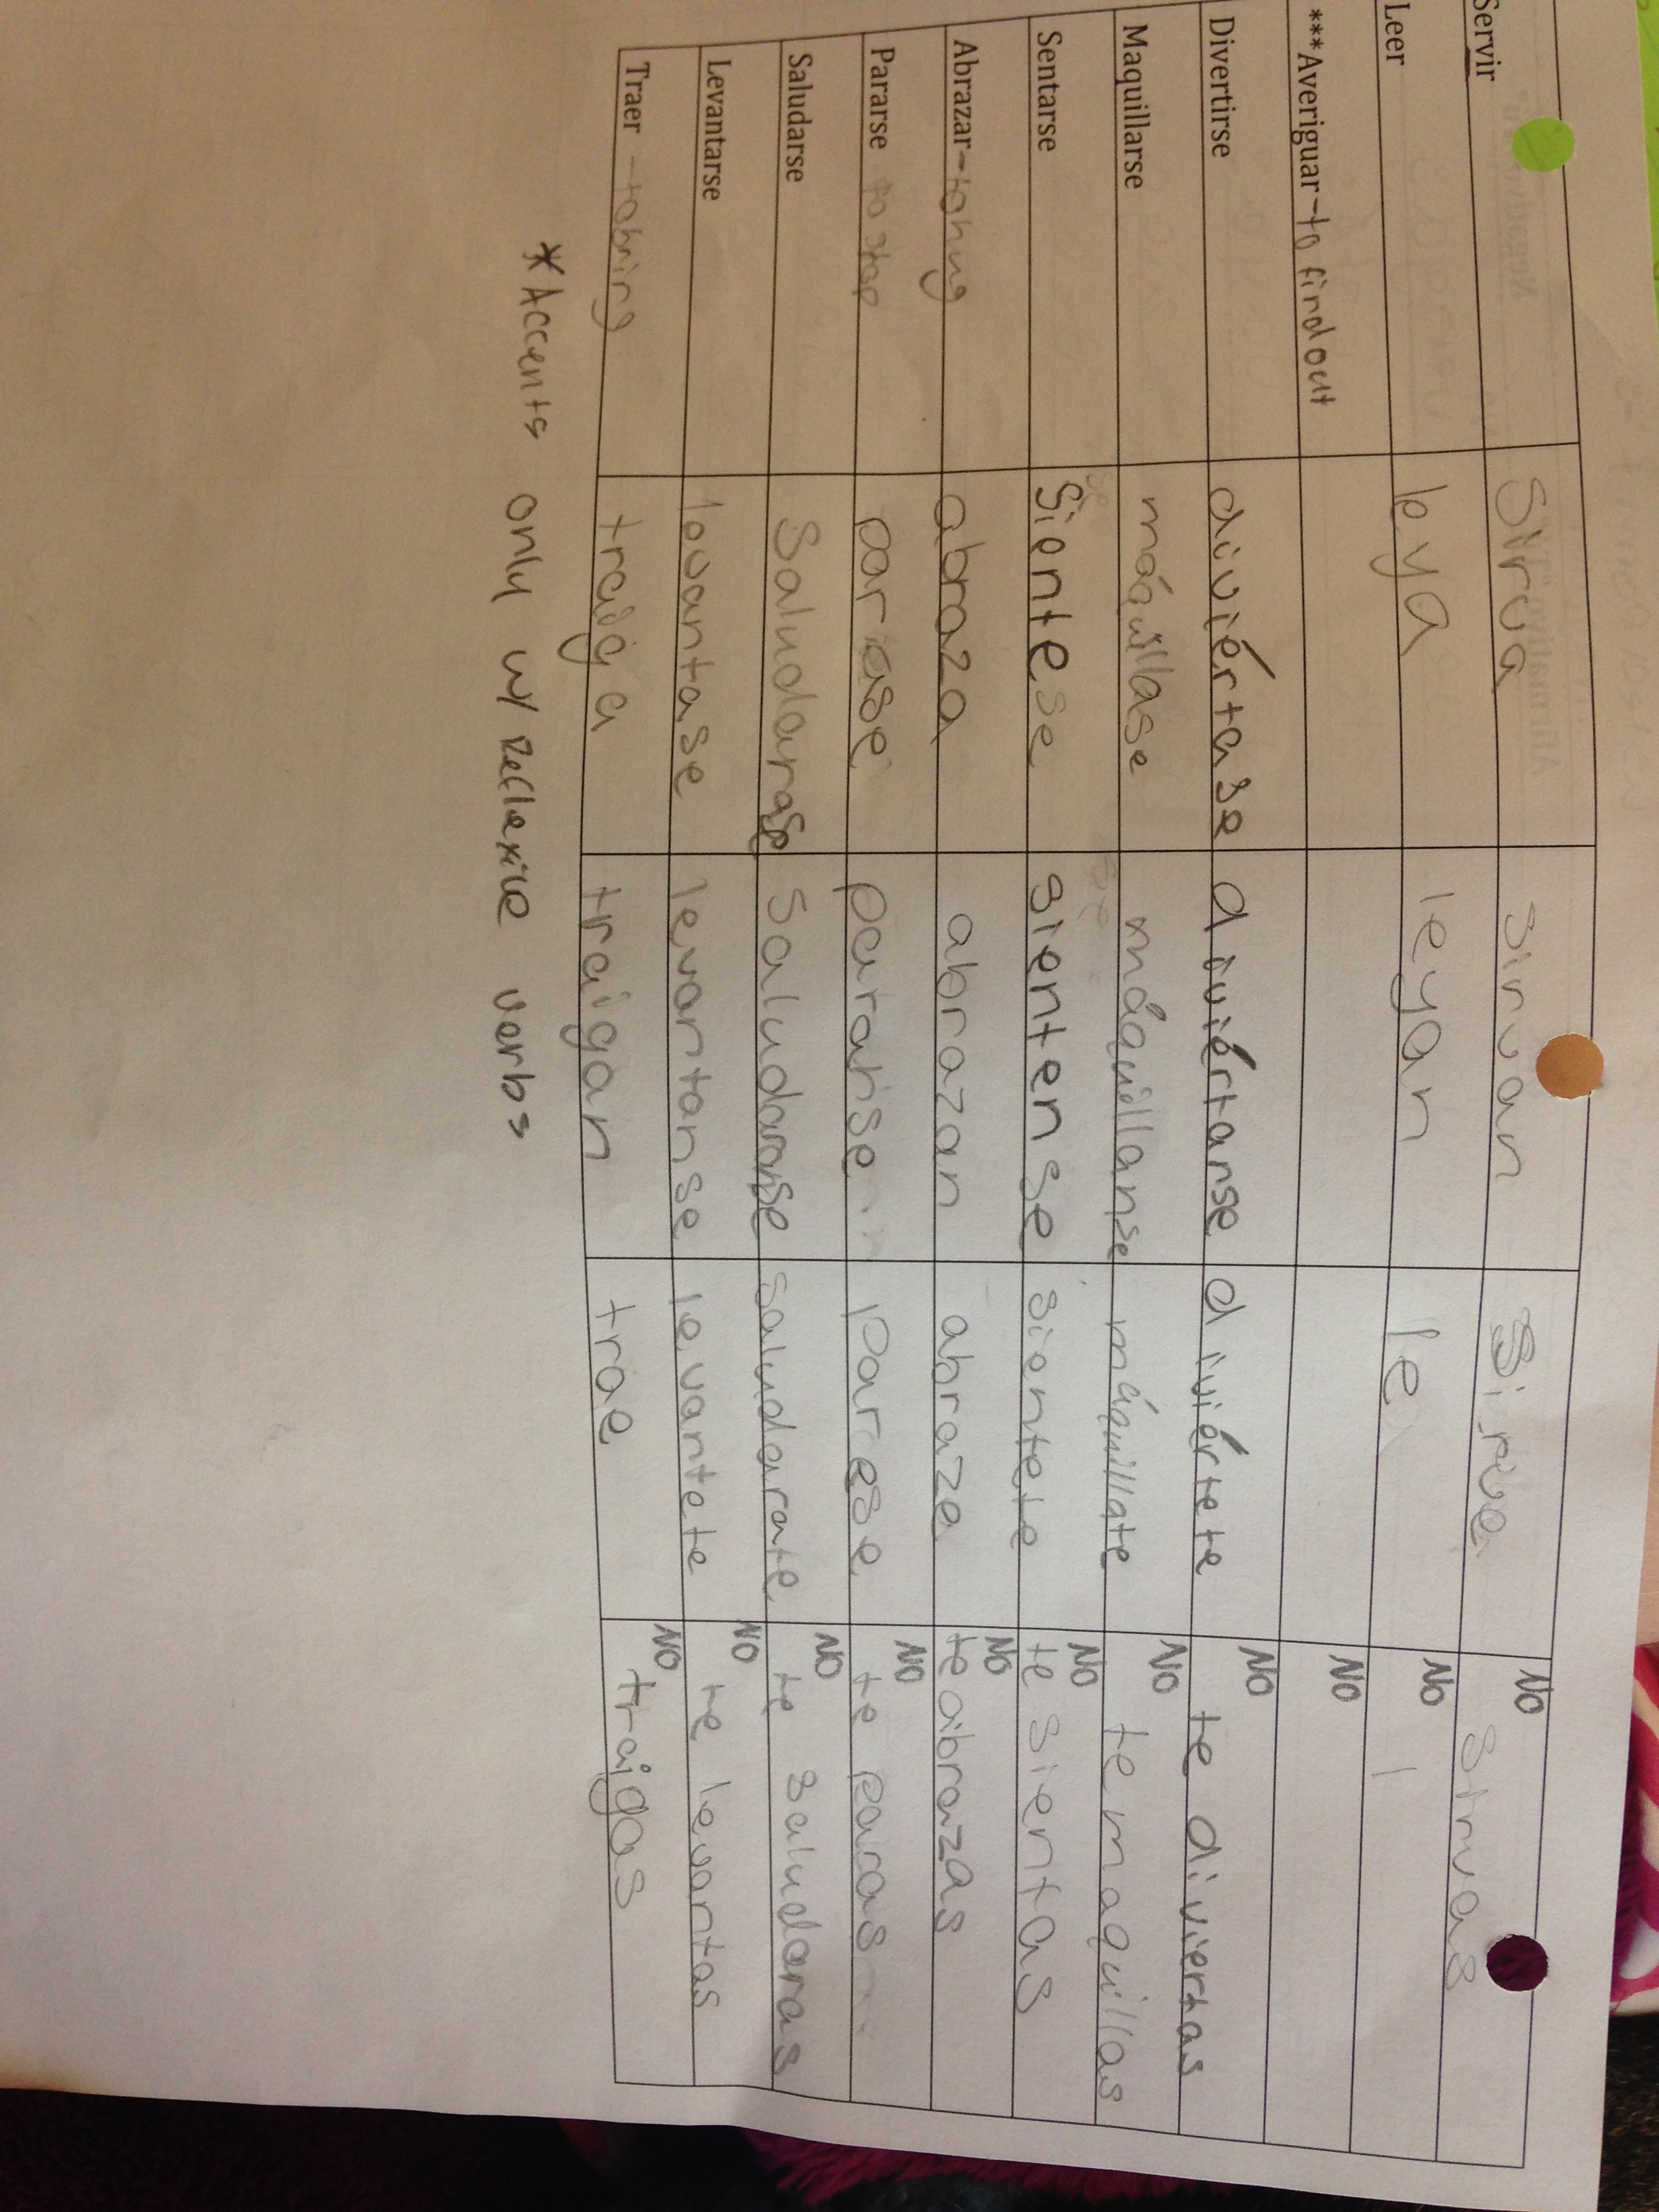 Servir Sirva sirvan Sirve No sirvas
Leer leya leyan le No l
***Averiguar-to find out No
Divertirse diviértase diviértanse diviértete No te diviertas
Maquillarse máquillase máquillanse máquillate No te maquillas
Sentarse Sientese sientense sientete No te sientas
Abrazar-to hug abraza abrazan abraza No te abrazas
Pararse to stop parase paranse parese No te paras
Saludarse Saludarase Saludaranse saludarate No te saludaras
Levantarse levantase levantanse levantete No te levantas
Traer -to bring traiga traigan trae No traigas
*Accents only w/ Reflexive verbs